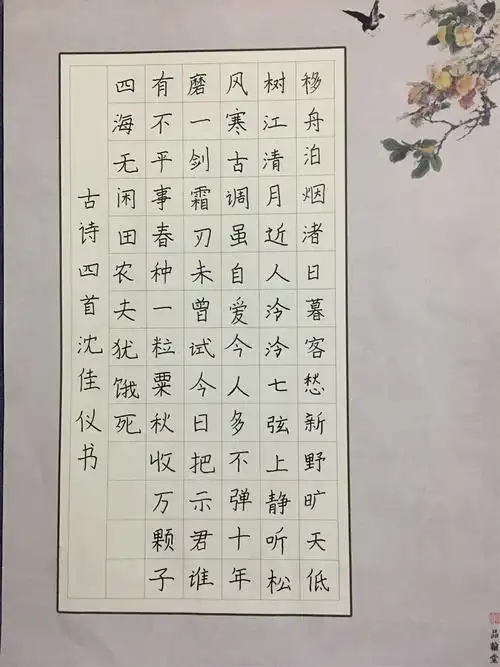 移舟泊烟渚日暮客愁新野旷天低
树江清月近人泠泠七弦上静听松
风寒古调虽自爱今人多不弹十年
磨一剑霜刃未曾试今日把示君谁
有不平事春种一粒粟秋收万颗子
四海无闲田农夫犹饿死
古诗四首沈佳仪书
品翰堂